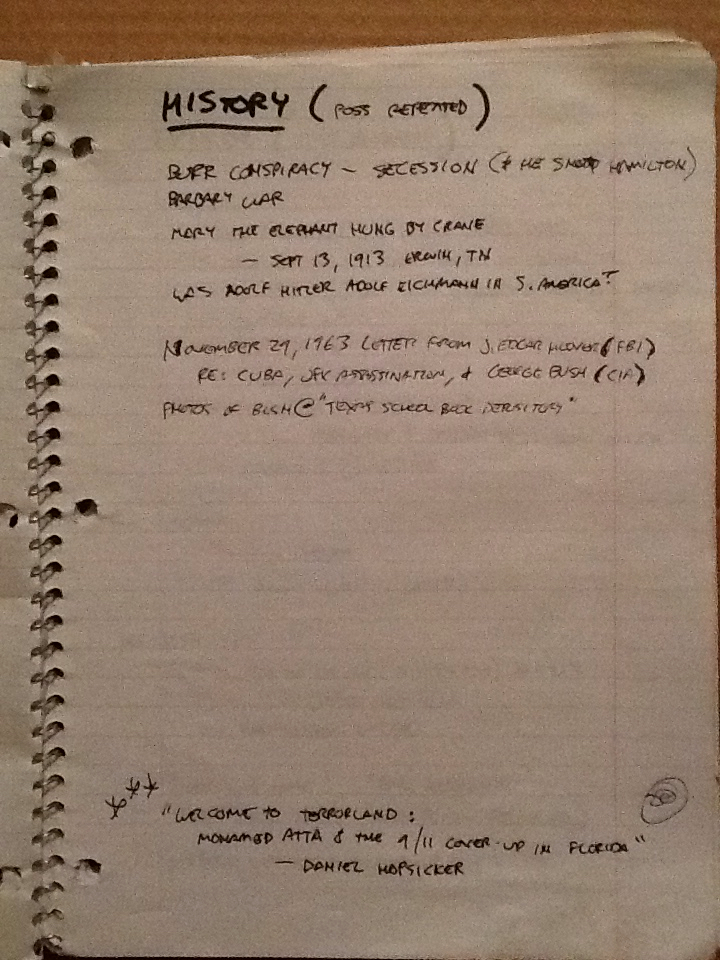 HISTORY (POSS REPEATED)
BURR CONSPIRACY - SECESSION (& HE SHOT HAMILTON)
BARBARY WAR
MARY THE ELEPHANT HUNG BY CRANE
- SEPT 13, 1913 ERWIN, TN
WAS ADOLF HITLER ADOLF EICHMANN IN S. AMERICA?
NOVEMBER 29, 1963 LETTER FROM J. EDGAR HOOVER (FBI)
RE: CUBA, JFK ASSASSINATION, & GEORGE BUSH (CIA)
PHOTOS OF BUSH @ "TEXAS SCHOOL BOOK DEPOSITORY"
*** "WELCOME TO TERRORLAND:
MOHAMED ATTA & THE 9/11 COVER-UP IN FLORIDA"
- DANIEL HOPSICKER